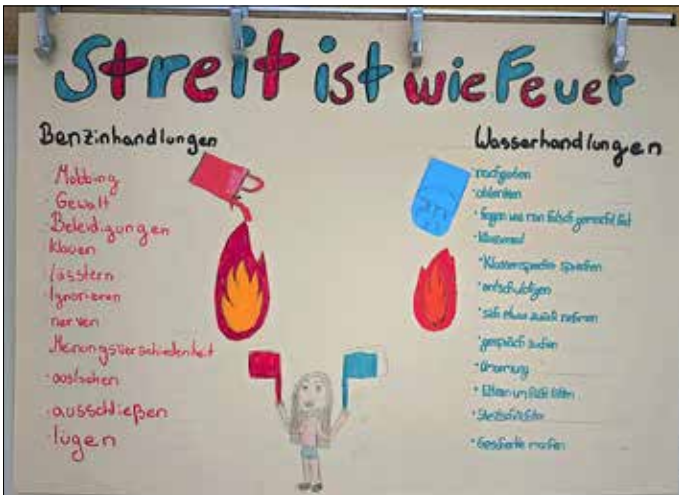 Streit ist wie Feuer
Benzinhandlungen
Mobbing
· Gewalt
· Beleidigungen
klauen
lästern
· Ignorieren
nerven
Menungsverschiedenheit
· auslachen
· ausschließen
· lügen
Wasserhandlungen
· nachgeben
· ablenken
· fragen was man falsch gemacht hat
· Klassenrat
· Klassensprecher sprechen
· entschuldigen
· sich etwas zurück nehmen
· gespräch suchen
· Umarmung
· Eltern um Rat bitten
· Streitschlichter
· Geschenke machen